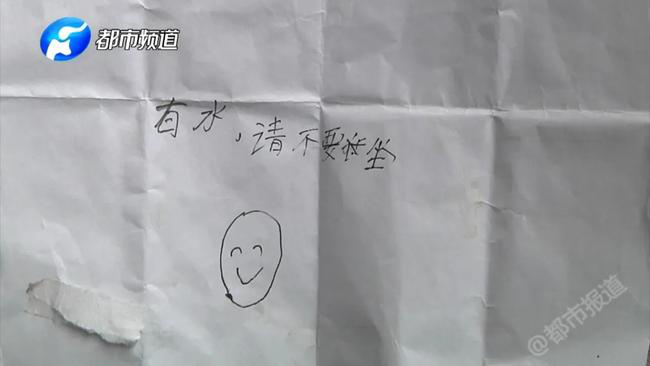 都市频道
有水，请不要坐
@都市报道